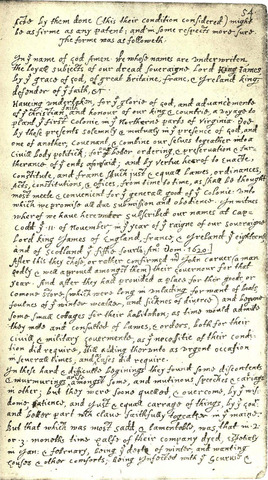 54
kites by them done (this their condition considered) might
be as firme as any patent; and in some respects more sure.
The forme was as followeth.
In yᵉ name of god Amen. We whose names are underwriten,
the loyall subjects of our dread soveraigne Lord King James
by yᵉ grace of god, of great Britaine, franc, & Ireland king,
defender of yᵉ faith, &c.
Haveing undertaken, for yᵉ glorie of god, and advancemente
of yᵉ christian faith and honour of our king & countrie, a voyage to
plant yᵉ first colonie in yᵉ Northerne parts of virginia. Doe
by these presents solemnly & mutualy in yᵉ presence of god, and
one of another, covenant, & combine our selves togeather into a
Civill body politick; for our better ordering, & preservation & fur-
therance of yᵉ ends aforesaid; and by vertue hearof to Enacte,
constitute, and frame shuch just & equall Lawes, ordinances,
Acts, constitutions, & offices, from time to time, as shall be thought
most meete & convenient for yᵉ generall good of yᵉ colonie: unto
which we promise all due submission and obedience. In witnes
wherof we have hereunder subscribed our names at Cap-
Codd yᵉ 11 of November, in yᵉ year of yᵉ raigne of our soveraigne
Lord king James of England, france, & Ireland yᵉ eighteenth
and of Scotland yᵉ fiftie fourth. Ano Dom. 1620.
After this they chose, or rather confirmed mr John carver (a man
godly & well approved amongst them) their Governour for that
year. And after they had provided a place for their goods, or
comone store, (which were long in unlading for want of boats,
foulnes of yᵉ winter weather, and sicknes of diverce) and begune
some small cottages for their habitation; as time would admitte
they mette and consulted of lawes, & orders, both for their
civill, & military govermente, as yᵉ necessitie of their condi-
tion did require, still adding therunto as urgent occasion
in severall times, and as cases did require.
In these hard & difficulte beginings they found some discontents
& murmurings amongst some, and mutinous speeches & carriags
in other; but they were soone quelled, & overcome, by yᵉ wis-
dome, patience, and just & equall carrage of things, by yᵉ govr
and better part wch clave faithfully togeather in yᵉ maine.
But that which was most sadd, & lamentable, was, that in 2.
or 3. moneths time halfe of their company dyed, espetialy
in Jan: & february, being yᵉ depth of winter, and wanting
houses & other comforts; being Infected with yᵉ Scurvie &